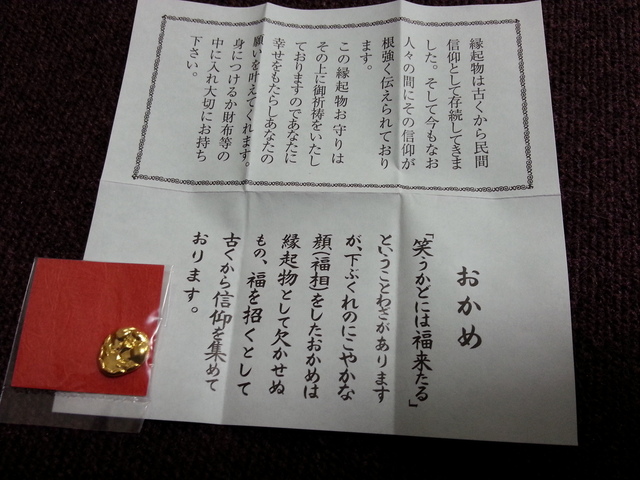 縁起物は古くから民間
信仰として存続してきま
した。そして今もなお
人々の間にその信仰が
根強く伝えられており
ます。
この縁起物お守りは
その上に御祈祷をいたし
ておりますのであなたに
幸せをもたらしあなたの
願いを叶えてくれます。
身につけるか財布等の
中に入れ大切にお持ち
下さい。
おかめ
「笑うかどには福来たる」
ということわざがあります
が、下ぶくれのにこやかな
顔(福相)をしたおかめは
縁起物として欠かせぬ
もの、福を招くとして
古くから信仰を集めて
おります。